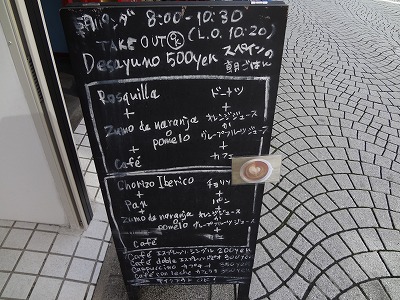 8:00-10:30
TAKE OUT OK (L.O. 10:20)
Desayuno 500yen スペインの
朝ごはん
Rosquilla ドーナツ
+ +
Zumo de naranja オレンジジュース
o pomelo グレープフルーツジュース
+ +
Café カフェ
Chorizo Iberico チョリソ
+ +
Pan パン
+ +
Zumo de naranja オレンジジュース
o pomelo グレープフルーツジュース
Café カフェ
Café エスプレッソ シングル 200yen
Café doble エスプレッソ
Cappuccino カプチーノ
Café con leche カフェラテ